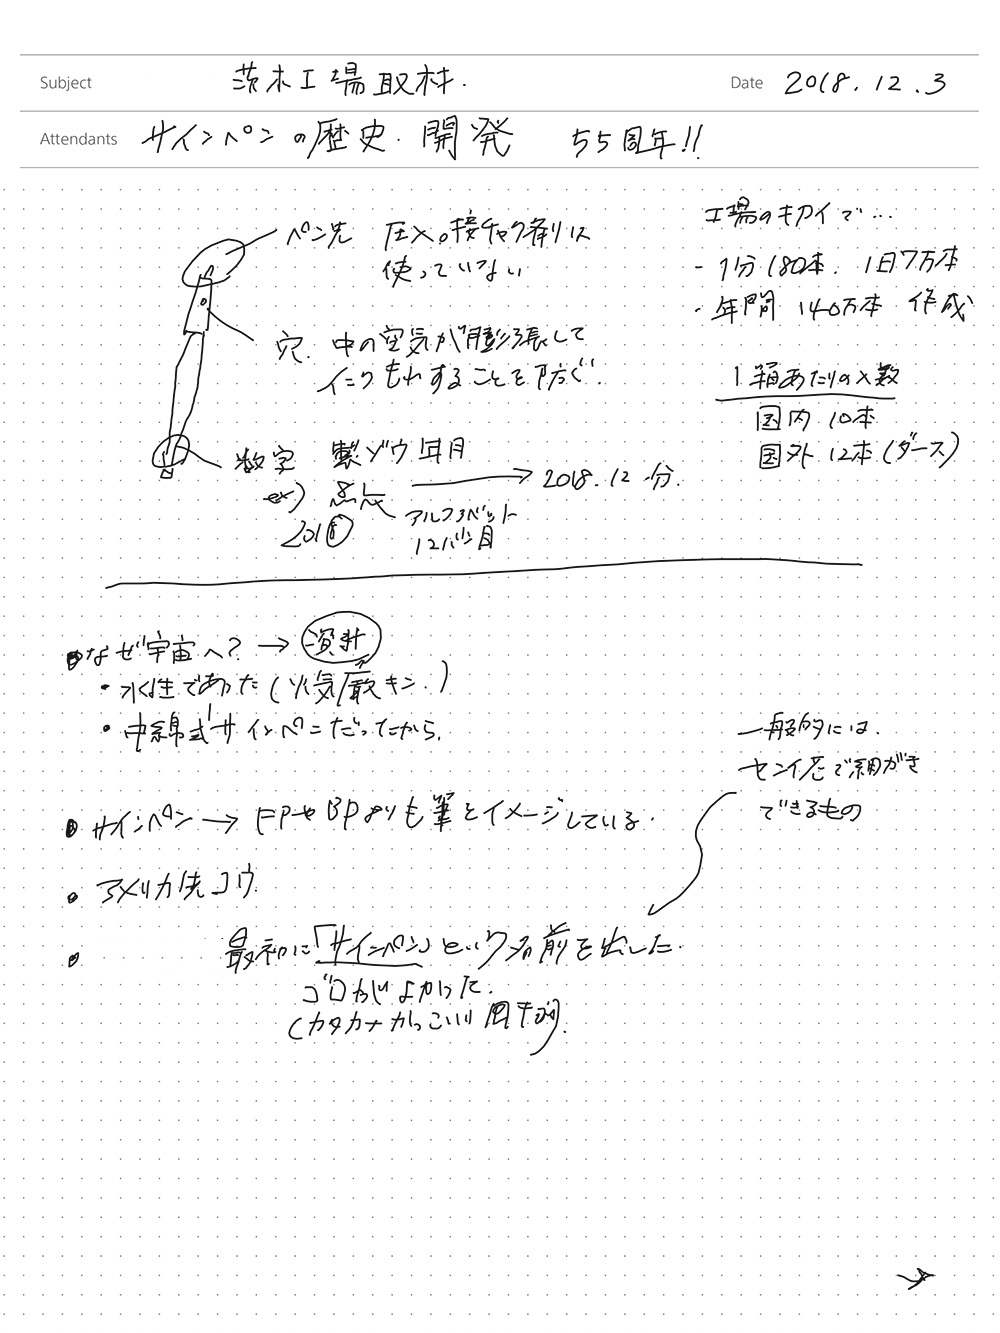 Subject 茨木工場取材. Date 2018.12.3
Attendants サインペンの歴史・開発 55周年!!
ペン先 圧入。接チャク剤は
使っていない
穴. 中の空気が膨張して
インクもれすることを防ぐ.
数字 製ゾウ年月
ex) 8L → 2018.12分.
2018 アルファベット
12バン目
工場のキカイで…
- 1分180本. 1日7万本
- 年間 140万本 作成
1箱あたりの入数
国内 10本
国外 12本(ダース)
なぜ宇宙へ? →
・水性であった(火気厳キン.)
・中綿式サインペンだったから.
一般的には.
センイ芯で細がき
できるもの
・サインペン → FPやBPよりも筆とイメージしている.
・アメリカ先コウ.
・最初に「サインペン」という名前を出した.
ゴロがよかった.
(カタカナかっこいい